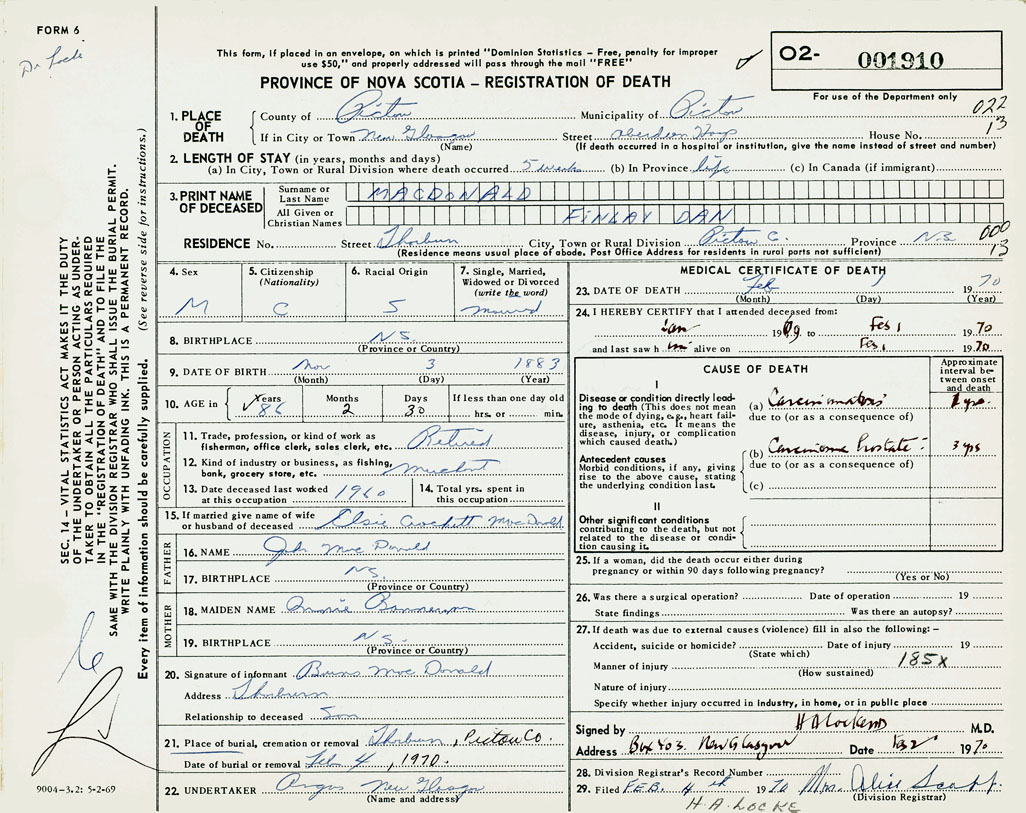 FORM 6
Dr Locke
This form, if placed in an envelope, on which is printed "Dominion Statistics - Free, penalty for improper
use $50," and properly addressed will pass through the mail "FREE"
PROVINCE OF NOVA SCOTIA - REGISTRATION OF DEATH
O2- 001910
For use of the Department only
022
13
1. PLACE OF DEATH
County of Pictou Municipality of Pictou
If in City or Town New Glasgow Street Aberdeen Hosp House No.
(Name) (If death occurred in a hospital or institution, give the name instead of street and number)
2. LENGTH OF STAY (in years, months and days)
(a) In City, Town or Rural Division where death occurred 5 weeks (b) In Province life (c) In Canada (if immigrant)
3. PRINT NAME OF DECEASED
Surname or Last Name MACDONALD
All Given or Christian Names FINLAY DAN
000
13
RESIDENCE No. Street Thorburn City, Town or Rural Division Pictou C. Province N.S
(Residence means usual place of abode. Post Office Address for residents in rural parts not sufficient)
4. Sex M
5. Citizenship (Nationality) C
6. Racial Origin S
7. Single, Married, Widowed or Divorced (write the word) married
8. BIRTHPLACE N.S.
(Province or Country)
9. DATE OF BIRTH Nov 3 1883
(Month) (Day) (Year)
10. AGE in Years 86 Months 2 Days 30 If less than one day old hrs. or min.
OCCUPATION
11. Trade, profession or kind of work as fisherman, office clerk, sales clerk, etc. Retired
12. Kind of industry or business, as fishing, bank, grocery store, etc.
13. Date deceased last worked at this occupation 1960
14. Total yrs. spent in this occupation
15. If married give name of wife or husband of deceased Elsie Crockett MacDonald
FATHER
16. NAME John MacDonald
17. BIRTHPLACE N.S.
(Province or Country)
MOTHER
18. MAIDEN NAME Annie
19. BIRTHPLACE N.S.
(Province or Country)
20. Signature of informant MacDonald
Address Thorburn
Relationship to deceased Son
21. Place of burial, cremation or removal Thorburn, Pictou Co.
Date of burial or removal Feb 4, 1970.
22. UNDERTAKER Angus New Glasgow
(Name and address)
MEDICAL CERTIFICATE OF DEATH
23. DATE OF DEATH Feb 1 1970
(Month) (Day) (Year)
24. I HEREBY CERTIFY that I attended deceased from:
Jan 1969 to Feb 1 1970
and last saw h im alive on Feb 1 1970
CAUSE OF DEATH
Approximate interval between onset and death
I
Disease or condition directly leading to death (This does not mean the mode of dying, e.g., heart failure, asthenia, etc. It means the disease, injury, or complication which caused death.)
(a) Carcinomatosis 1 yr.
due to (or as a consequence of)
Antecedent causes
Morbid conditions, if any, giving rise to the above cause, stating the underlying condition last.
(b) Carcinoma Prostate 3 yrs
due to (or as a consequence of)
(c)
II
Other significant conditions contributing to the death, but not related to the disease or condition causing it.
25. If a woman, did the death occur either during pregnancy or within 90 days following pregnancy?
(Yes or No)
26. Was there a surgical operation? Date of operation 19
State findings Was there an autopsy?
27. If death was due to external causes (violence) fill in also the following: -
Accident, suicide or homicide? Date of injury 19
(State which)
185x
Manner of injury
(How sustained)
Nature of injury
Specify whether injury occurred in industry, in home, or in public place
Signed by H A Locke MD M.D.
Address Box 403. New Glasgow Date Feb 2 1970
28. Division Registrar's Record Number
29. Filed FEB. 4 th 1970 Mrs. Alice
(Division Registrar)
H. A. LOCKE
SEC. 14 - VITAL STATISTICS ACT MAKES IT THE DUTY
OF THE UNDERTAKER OR PERSON ACTING AS UNDER-
TAKER TO OBTAIN ALL THE PARTICULARS REQUIRED
IN THE "REGISTRATION OF DEATH" AND TO FILE THE
SAME WITH THE DIVISION REGISTRAR WHO SHALL ISSUE THE BURIAL PERMIT.
WRITE PLAINLY WITH UNFADING INK. THIS IS A PERMANENT RECORD.
Every item of information should be carefully supplied. (See reverse side for instructions.)
9004-3.2: 5-2-69